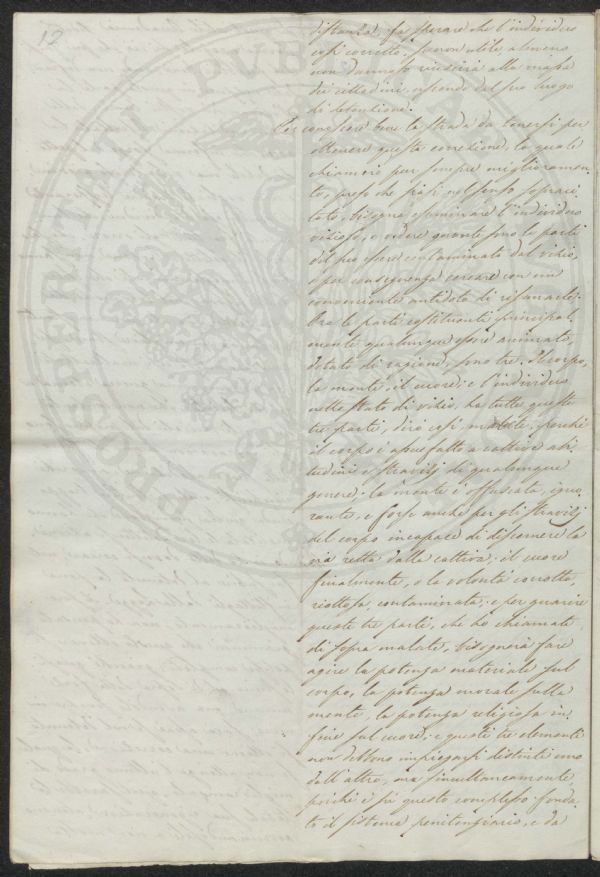 12
PROSPERITATI PVBLICAE
distanza, fa sperare che l'individuo
così corretto, se non utile almeno
non dannoso riuscirà alla massa
dei cittadini uscendo dal suo luogo
di detenzione.
Per conoscere bene la strada da tenersi per
ottenere questa correzione, la quale
chiamerò per sempre miglioramen-
to, preso che siasi nel senso sopraci-
tato, bisogna esaminare l'individuo
vizioso, e vedere quante sono le parti
del suo essere contaminato dal vizio,
e per conseguenza cercare con un
conveniente antidoto di risanarle.
Ora le parti costituenti principal-
mente qualunque essere animato,
dotato di ragione, sono tre. Il corpo,
la mente, il cuore; e l'individuo
nello stato di vizio, ha tutte queste
tre parti, dirò così malate, perchè
il corpo è assuefatto a cattive abi-
tudini e stravizj di qualunque
genere; la mente è offuscata, igno-
rante, e forse anche per gli stravizj
del corpo incapace di discernere la
via retta dalla cattiva; il cuore
finalmente, e la volontà corrotta,
riottosa, contaminata; e per guarire
queste tre parti, che ho chiamate
di sopra malate, bisognerà fare
agire la potenza materiale sul
corpo, la potenza morale sulla
mente, la potenza religiosa in-
fine sul cuore; e questi tre elementi
non debbono impiegarsi distinti uno
dall'altro, ma simultaneamente
poichè è su questo complesso fonda-
to il sistema penitenziario, e da